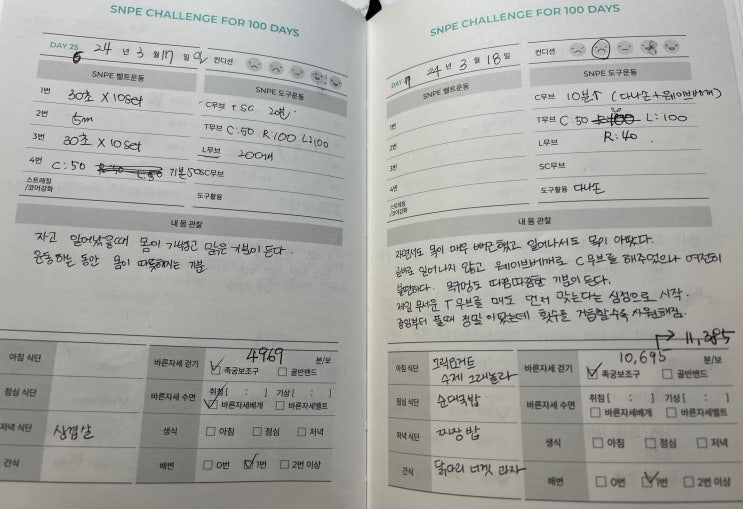 SNPE CHALLENGE FOR 100 DAYS
DAY 26 24 년 3 월 17 일 일
컨디션
SNPE 벨트운동
1번 30초 X 10set
2번 5m
3번 30초 X 10set
4번 C:50 기본50
스트레칭
/코어강화
SNPE 도구운동
C무브 + SC 20번
T무브 C:50 R100 L:100
L무브 200개
SC무브
도구활용
내 몸 관찰
자고 일어났을때 몸이 가볍고 맑은 기분이 든다.
운동하는 동안 몸이 따뜻해지는 기분.
아침 식단
점심 식단
저녁 식단 삼겹살
간식
바른자세 걷기 4969 분/보
족궁보조구 골반밴드
바른자세 수면 취침 [ : ] 기상 [ : ]
바른자세베개 바른자세벨트
생식 아침 점심 저녁
배변 0번 1번 2번 이상
SNPE CHALLENGE FOR 100 DAYS
DAY 24 년 3 월 18 일
컨디션
SNPE 벨트운동
1번
2번
3번
4번
스트레칭
/코어강화
SNPE 도구운동
C무브 10분↑ (다나손+웨이브베개)
T무브 C:50 L:100
R:40
L무브
SC무브
도구활용 다나손
내 몸 관찰
자면서도 목이 매우 뻐근했고 일어나서도 목이 아팠다.
곧바로 일어나지 않고 웨이브베개로 C무브를 해주었으나 여전히
불편하다. 목구멍도 따끔따끔한 기분이 든다.
제일 무서운 T무브를 매도 먼저 맞는다는 심정으로 시작.
중앙부터 풀때 정말 아팠는데 횟수를 거듭할수록 시원해짐.
아침 식단 그릭요거트
수제 그래놀라
점심 식단 순대국밥
저녁 식단 짜장밥
간식 닭다리 너겟 과자
→ 11,385
바른자세 걷기 10,695 분/보
족궁보조구 골반밴드
바른자세 수면 취침 [ : ] 기상 [ : ]
바른자세베개 바른자세벨트
생식 아침 점심 저녁
배변 0번 1번 2번 이상